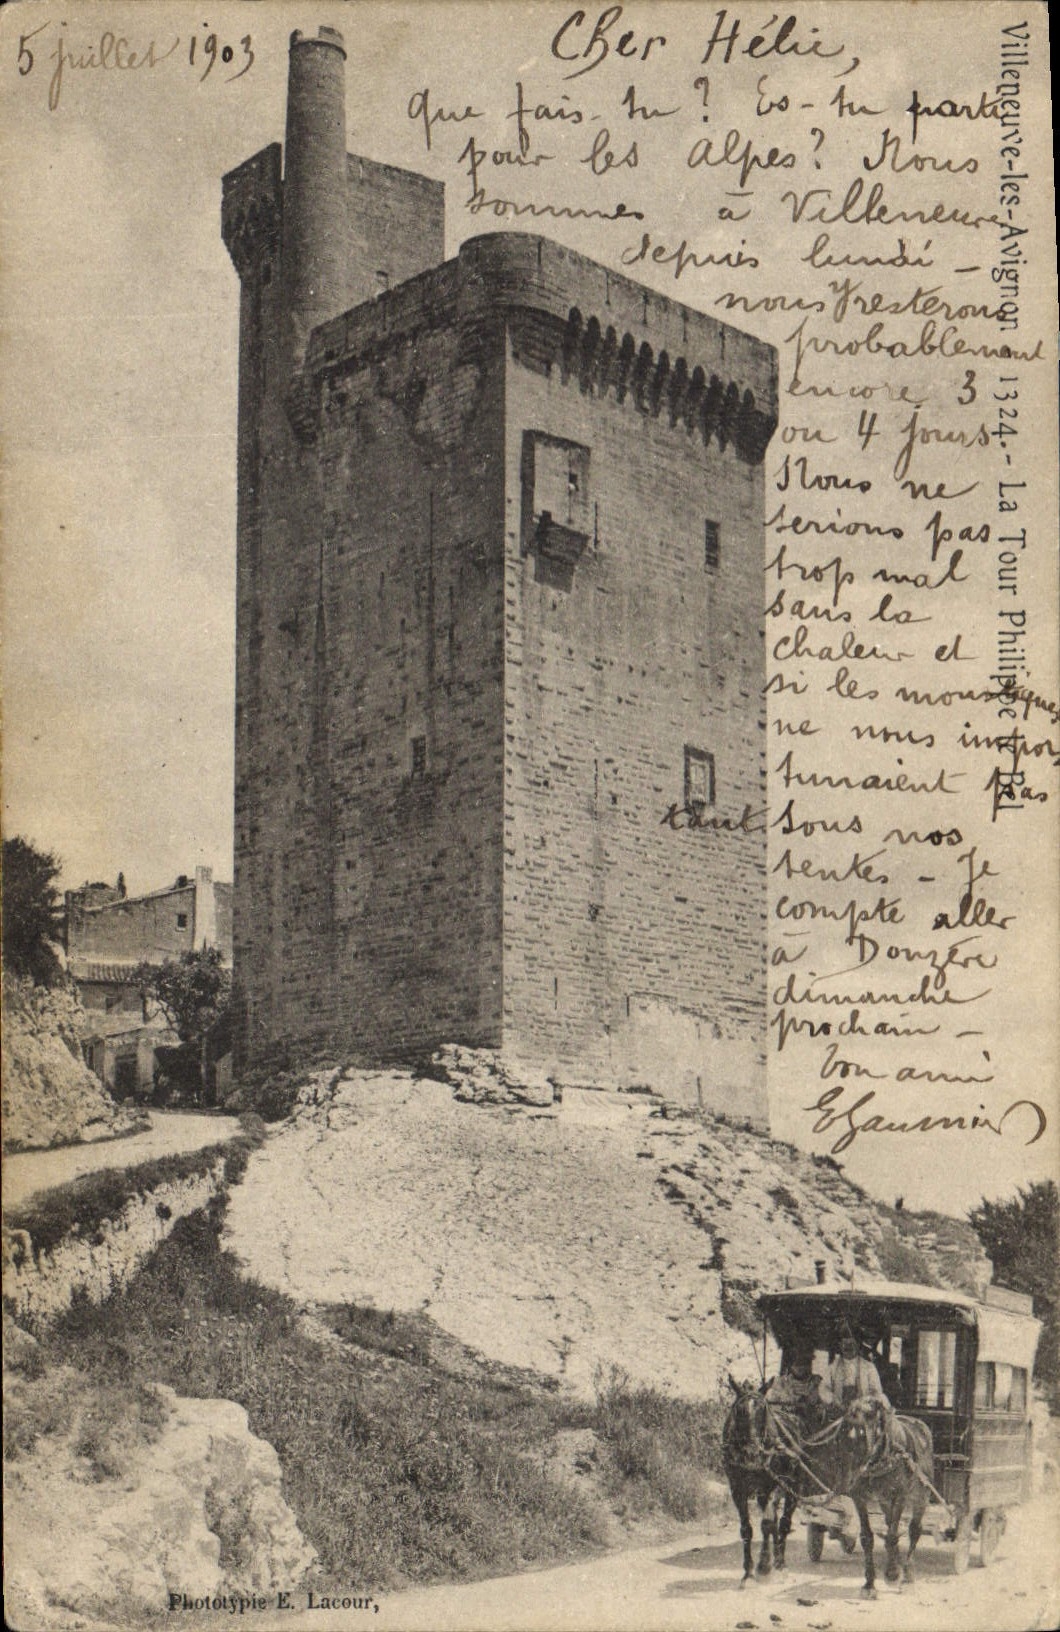 5 juillet 1903
Cher Hélie,
que fais-tu ? Es-tu parti
pour les Alpes ? Nous
sommes à Villeneuve
depuis lundi –
nous y resterons
probablement
encore 3
ou 4 jours.
Nous ne
serions pas
trop mal
sans la
chaleur et
si les moustiques
ne nous impor-
tunaient pas
tant sous nos
tentes – Je
compte aller
à Donzère
dimanche
prochain –
ton ami
Villeneuve-les-Avignon 1324. - La Tour Philippe le Bel
Phototypie E. Lacour,